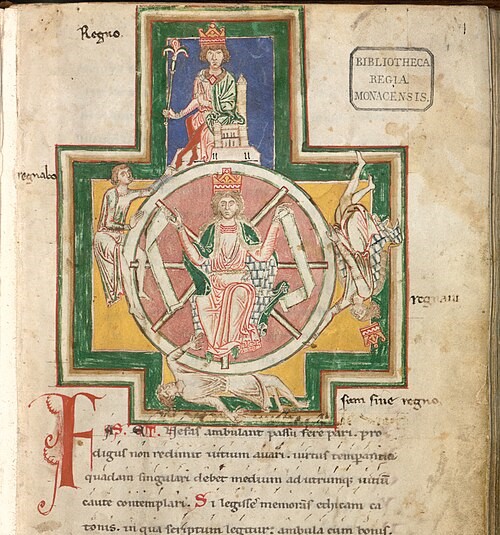 Regno.
1
BIBLIOTHECA
REGIA
MONACENSIS.
regnabo
regnaui
sum sine regno.
Fas et Nefas ambulant passu fere pari. pro
digus non redimit uitium auari. uirtus temperantia
quadam singulari debet medium ad utrumque uitium
caute contemplari. Si legisse memoras ethicam ca
tonis. in qua scriptum legitur: ambula cum bonis.